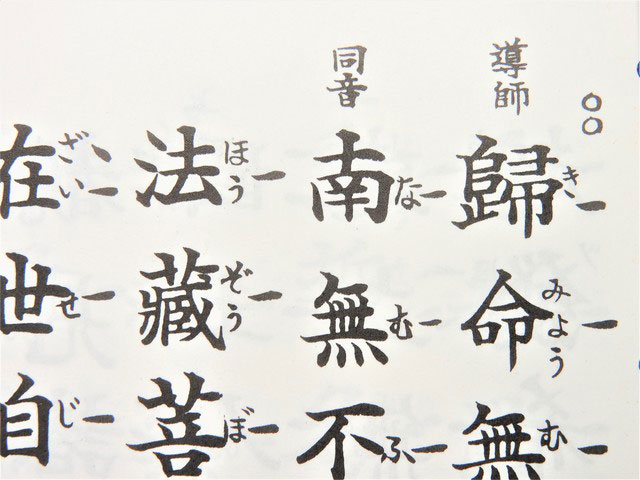 ○○
導師
歸命無
き みよう む
同音
南無不
な む ふ
法藏菩
ほう ぞう ぼ
在世自
ざい せ じ